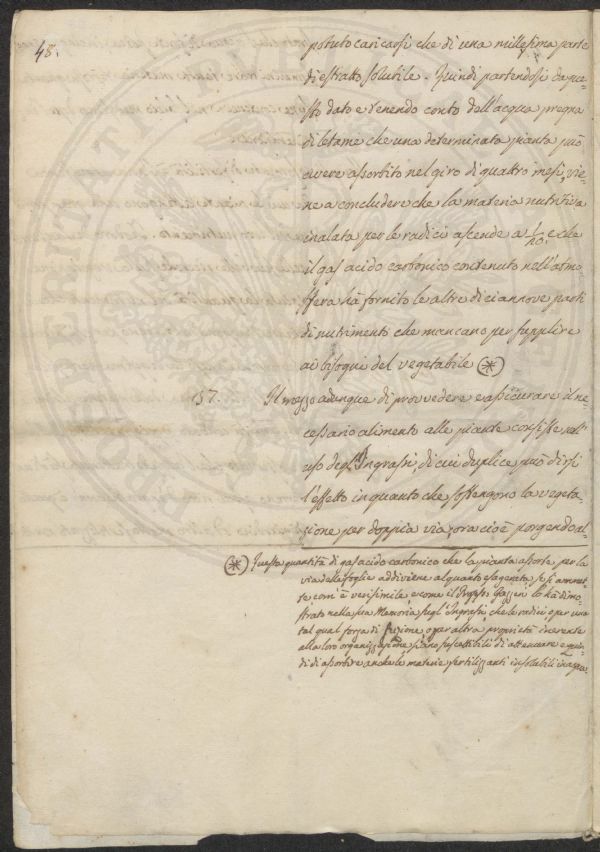 48.
potuto caricarsi che di una millesima parte
di estratto solubile. Quindi partendosi da que-
sto dato e tenendo conto dell'acqua pregna
di letame che una determinata pianta può
avere assorbito nel giro di quattro mesi, vie-
ne a concludere che la materia nutritiva
inalata per le radici ascende a 1/20: e che
il gas acido carbonico contenuto nell'atmo-
sfera hà fornito le altre diciannove parti
di nutrimento che mancano per supplire
ai bisogni del vegetabile (*)
157. Il mezzo adunque di provvedere e assicurare il ne-
cessario alimento alle piante consiste nell'
uso degl'Ingrassi, di cui duplice può dirsi
l'effetto in quanto che sostengono la vegeta-
zione per doppia via, ora cioè porgendo al-
(*) Questa quantità di gas acido carbonico che la pianta assorte per la
via della foglie addiviene alquanto esagerata se si ammet-
te com'è verisimile e come il Profess: Gazzeri lo hà dimo-
strato nella sua Memoria sugl'Ingrassi che le radici o per una
tal qual forza di suzione o per altra proprietà inerente
alla loro organizzazione siano suscettibili di attenuare e quin-
di di assortire anche le materie fertilizzanti insolubili in acqua.